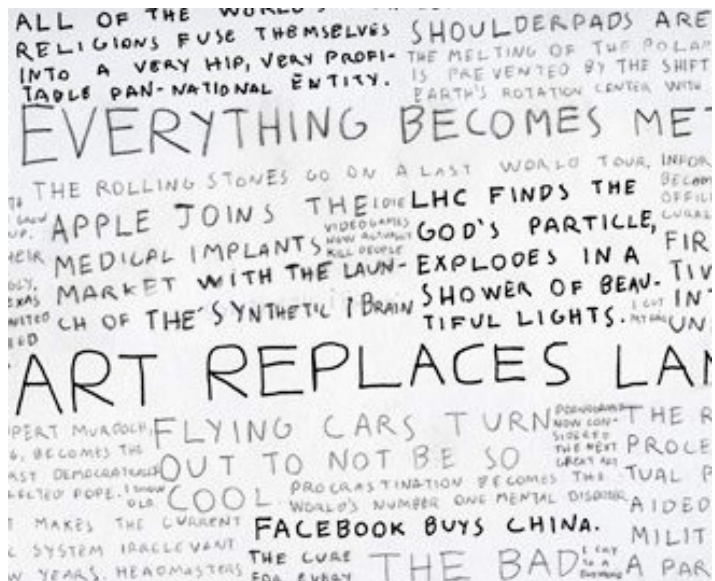 ALL OF THE WORLD'S
RELIGIONS FUSE THEMSELVES
INTO A VERY HIP, VERY PROFI-
TABLE PAN-NATIONAL ENTITY.
SHOULDERPADS ARE
THE MELTING OF THE POLAR
IS PREVENTED BY THE SHIFT
EARTH'S ROTATION CENTER WITH
EVERYTHING BECOMES MET
THE ROLLING STONES GO ON A LAST WORLD TOUR,
APPLE JOINS THE
MEDICAL IMPLANTS
MARKET WITH THE LAUN-
CH OF THE SYNTHETIC IBRAIN
I DIE
VIDEOGAMES
NOW ACTUALLY
KILL PEOPLE
LHC FINDS THE
GOD'S PARTICLE,
EXPLODES IN A
SHOWER OF BEAU-
TIFUL LIGHTS.
INFOR
BECOM
OFFIC
FIR
TIV
INT
UNS
ART REPLACES LAN
PERT MURDOCH,
BECOMES THE
AST DEMOCRATICALLY
ELECTED POPE.
I GROW
OLD
FLYING CARS TURN
OUT TO NOT BE SO
COOL
NOW CON-
SIDERED
THE NEXT
GREAT ART
PROCRASTINATION BECOMES THE
WORLD'S NUMBER ONE MENTAL DISORDER
THE R
PROCE
TUAL P
AIDED
MILIT
A PAR
MAKES THE CURRENT
SYSTEM IRRELEVANT
YEARS, HEADMASTERS
FACEBOOK BUYS CHINA.
THE CURE
FOR EVERY
THE BAD
I CRY